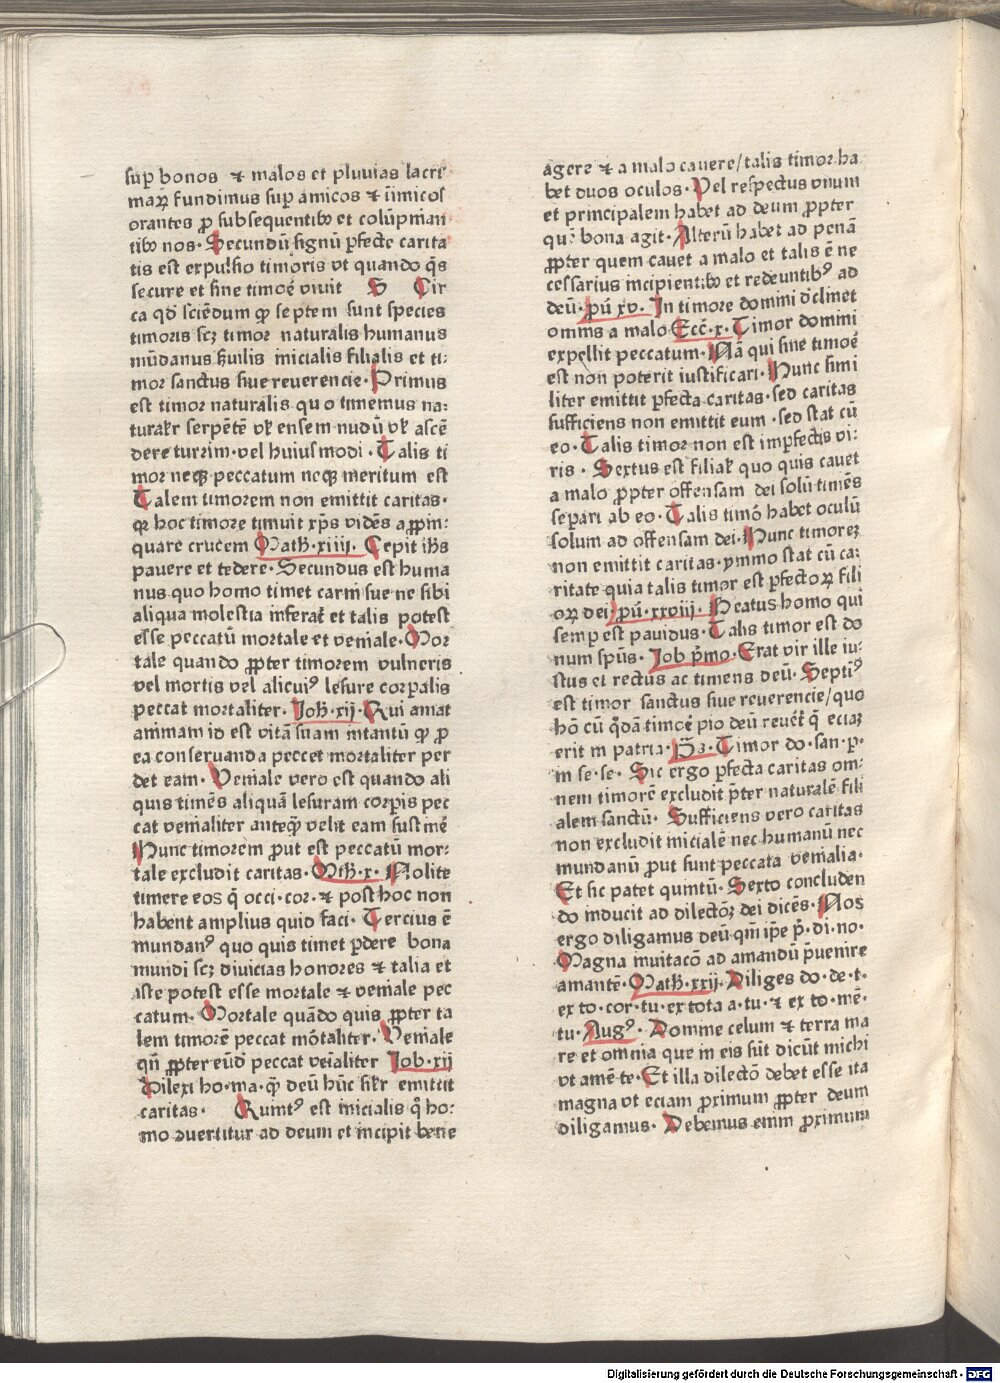 suꝑ bonos ⁊ malos et pluuias lacri
maꝝ fundimus suꝑ amicos ⁊ inimicos
orantes ꝓ subsequentibꝰ et colūpnan
tibꝰ nos· Secundū signū ꝑfecte carita
tis est expulsio timoris vt quando q̄s
secure et sine timoē viuit S Cir
ca qd̄ sciēdum ꝙ septem sunt species
timoris scꝫ timor naturalis humanus
mūdanus ẜuilis inicialis filialis et ti⸗
mor sanctus siue reuerencie· Primus
est timor naturalis quo timemus na⸗
turalr̄ serpētē vl̓ ensem nudū vl̓ ascē
dere turrim·vel huiusmodi · Talis ti
mor neqꝫ peccatum neqꝫ meritum est
Talem timorem non emittit caritas·
qꝛ hoc timore timuit xp̄s vidēs appin⸗
quare crucem Math̄·xiiij· Cepit ih̄s
pauere et tedere· Secundus est huma
nus quo homo timet carni sue ne sibi
aliqua molestia inferat̄ et talis potest
esse peccatū mortale et veniale· Mor
tale quando ꝓpter timorem vulneris
vel mortis vel alicuiꝰ lesure corꝑalis
peccat mortaliter· Joh̄·xij· Qui amat
animam id est vitā suam intantū ꝙ ꝓ
ea conseruanda peccet mortaliter per
det eam· Veniale vero est quando ali
quis timēs aliquā lesuram corꝑis pec
cat venialiter anteqꝫ velit eam sustinē
Hunc timorem ꝓut est peccatū mor⸗
tale excludit caritas· Mth̄·x· Nolite
timere eos q̄ occi·cor·⁊ post hoc non
habent amplius quid faci· Tercius ē
mundanꝰ quo quis timet ꝑdere bona
mundi scꝫ diuicias honores ⁊ talia et
iste potest esse mortale ⁊ veniale pec
catum· Mortale quādo quis ꝓpter ta
lem timorē peccat mōtaliter· Veniale
qn̄ ꝓpter eūd peccat veīaliter Joh·xij
Dilexi ho·ma·qꝫ deū hūc silr̄ emittit
caritas· Quintꝰ est inicialis q̄ ho⸗
mo ↄuertitur ad deum et incipit bene
agere ⁊ a malo cauere/talis timor ha
bet duos oculos· Vel respectus vnum
et principalem habet ad deum ꝓpter
quē bona agit· Alterū habet ad penā
ꝓpter quem cauet a malo et talis ē ne
cessarius incipientibꝰ et redeuntibꝰ ad
deū· ꝓū xv· In timore domini d̓clinet
omnis a malo Ecc̄·x· Timor domini
expellit peccatum· Nā qui sine timoē
est non poterit iustificari· Hunc simi
liter emittit ꝑfecta caritas·sed caritas
sufficiens non emittit eum ·sed stat cū
eo· Talis timor non est imꝑfectis vi⸗
ris · Sextus est filial̓ quo quis cauet
a malo ꝓpter offensam dei solū timēs
seꝑari ab eo· Talis timō habet oculū
solum ad offensam dei· Hunc timorez
non emittit caritas·ymmo stat cū ca⸗
ritate quia talis timor est ꝑfectoꝝ fili
oꝝ dei· ꝓū·xxviij· Beatus homo qui
semꝑ est pauidus· Talis timor est do
num spūs· Job p̄mo· Erat vir ille iu⸗
stus et rectus ac timens deū· Septimꝰ
est timor sanctus siue reuerencie/quo
hō cū q̄dā timoē pio deū reuēt q̄ eciaꝫ
erit in patria· Timor do·san·ꝑ·
in se·se· Sic ergo ꝑfecta caritas om⸗
nem timorē excludit p̄ter naturalē fili
alem sanctū· Sufficiens vero caritas
non excludit inicialē nec humanū nec
mundanū ꝓut sunt peccata venialia·
Et sic patet quintū· Sexto concluden
do inducit ad dilectōꝫ dei dicēs· Nos
ergo diligamus deū qm̄ ip̄e p̄·di·no·
Magna inuitacō ad amandū p̄uenire
amantē· Math̄·xxij· Diliges do·de·t·
ex to·cor·tu·ex tota a·tu·⁊ ex to·mē·
tu· Augꝰ· Domine celum ⁊ terra ma
re et omnia que in eis sūt dicūt michi
vt amē te· Et illa dilectō debet esse ita
magna vt eciam ꝓximum ꝓpter deum
diligamus· Debemus enim ꝓximum
Digitalisierung gefördert durch die Deutsche Forschungsgemeinschaft - DFG